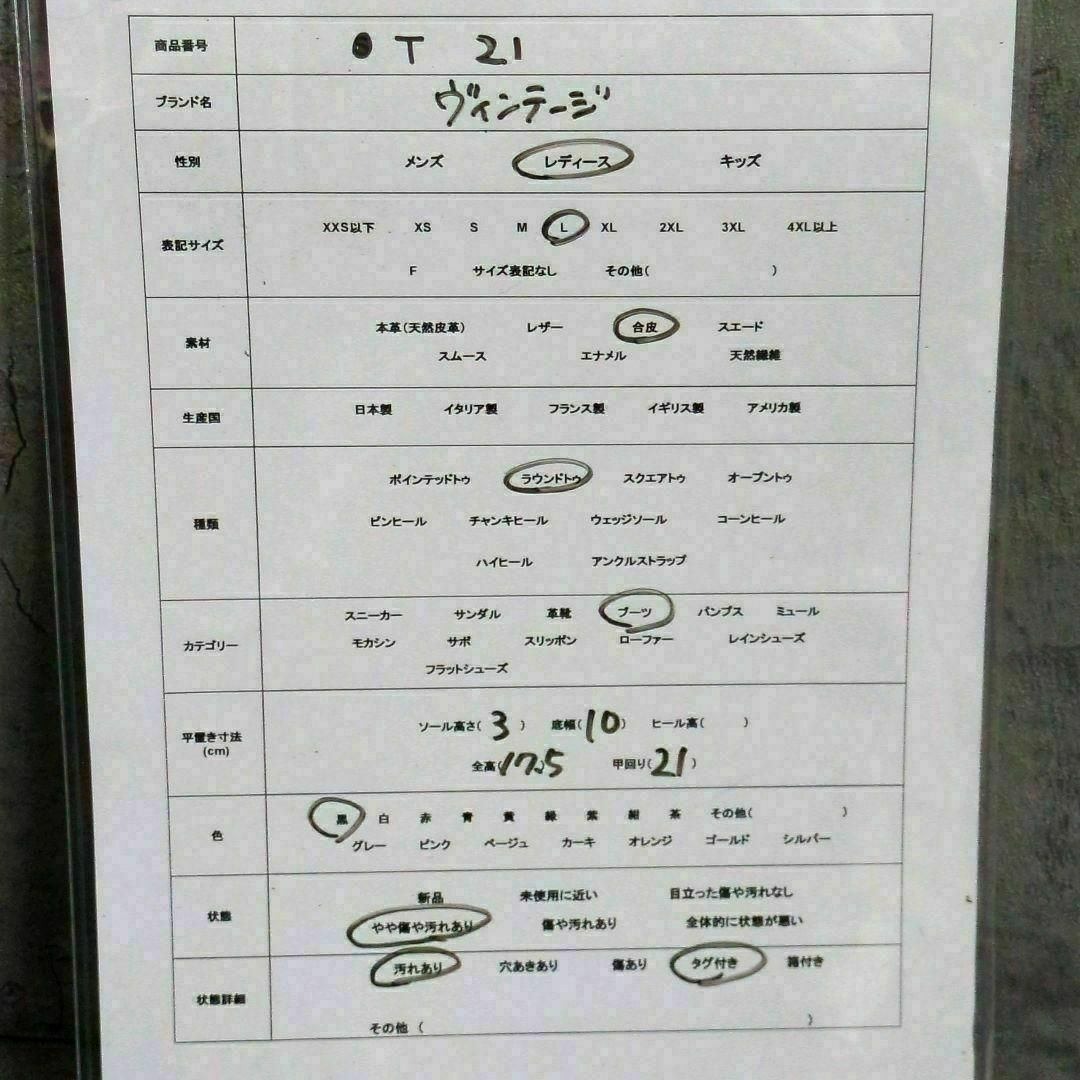 商品番号 T 21
ブランド名 ヴィンテージ
性別 メンズ レディース キッズ
XXS以下 XS S M L XL 2XL 3XL 4XL以上
表記サイズ
F サイズ表記なし その他( )
本革(天然皮革) レザー 合皮 スエード
素材
スムース エナメル 天然繊維
生産国 日本製 イタリア製 フランス製 イギリス製 アメリカ製
ポインテッドトゥ ラウンドトゥ スクエアトゥ オープントゥ
種類 ピンヒール チャンキヒール ウェッジソール コーンヒール
ハイヒール アンクルストラップ
スニーカー サンダル 革靴 ブーツ パンプス ミュール
カテゴリー モカシン サボ スリッポン ローファー レインシューズ
フラットシューズ
ソール高さ( 3 ) 底幅( 10 ) ヒール高( )
平置き寸法
(cm)
全高( 17.5 甲回り( 21 )
黒 白 赤 青 黄 緑 紫 紺 茶 その他( )
色
グレー ピンク ベージュ カーキ オレンジ ゴールド シルバー
新品 未使用に近い 目立った傷や汚れなし
状態
やや傷や汚れあり 傷や汚れあり 全体的に状態が悪い
汚れあり 穴あきあり 傷あり タグ付き 箱付き
状態詳細
その他 ( )